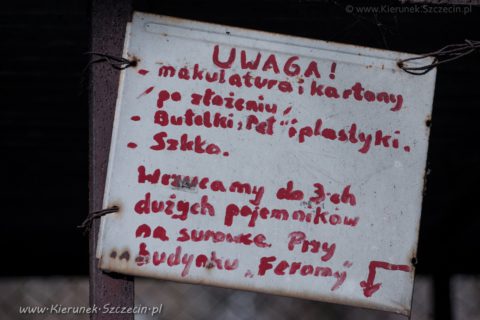 © www.Kierunek.Szczecin.pl
UWAGA!
- makulatura i kartony
/po złożeniu/
- Butelki „Pet” i plastyki.
- Szkło.
Wrzucamy do 3-ch
dużych pojemników
na surowce. Przy
budynku „Feromy”
www.Kierunek-Szczecin.pl